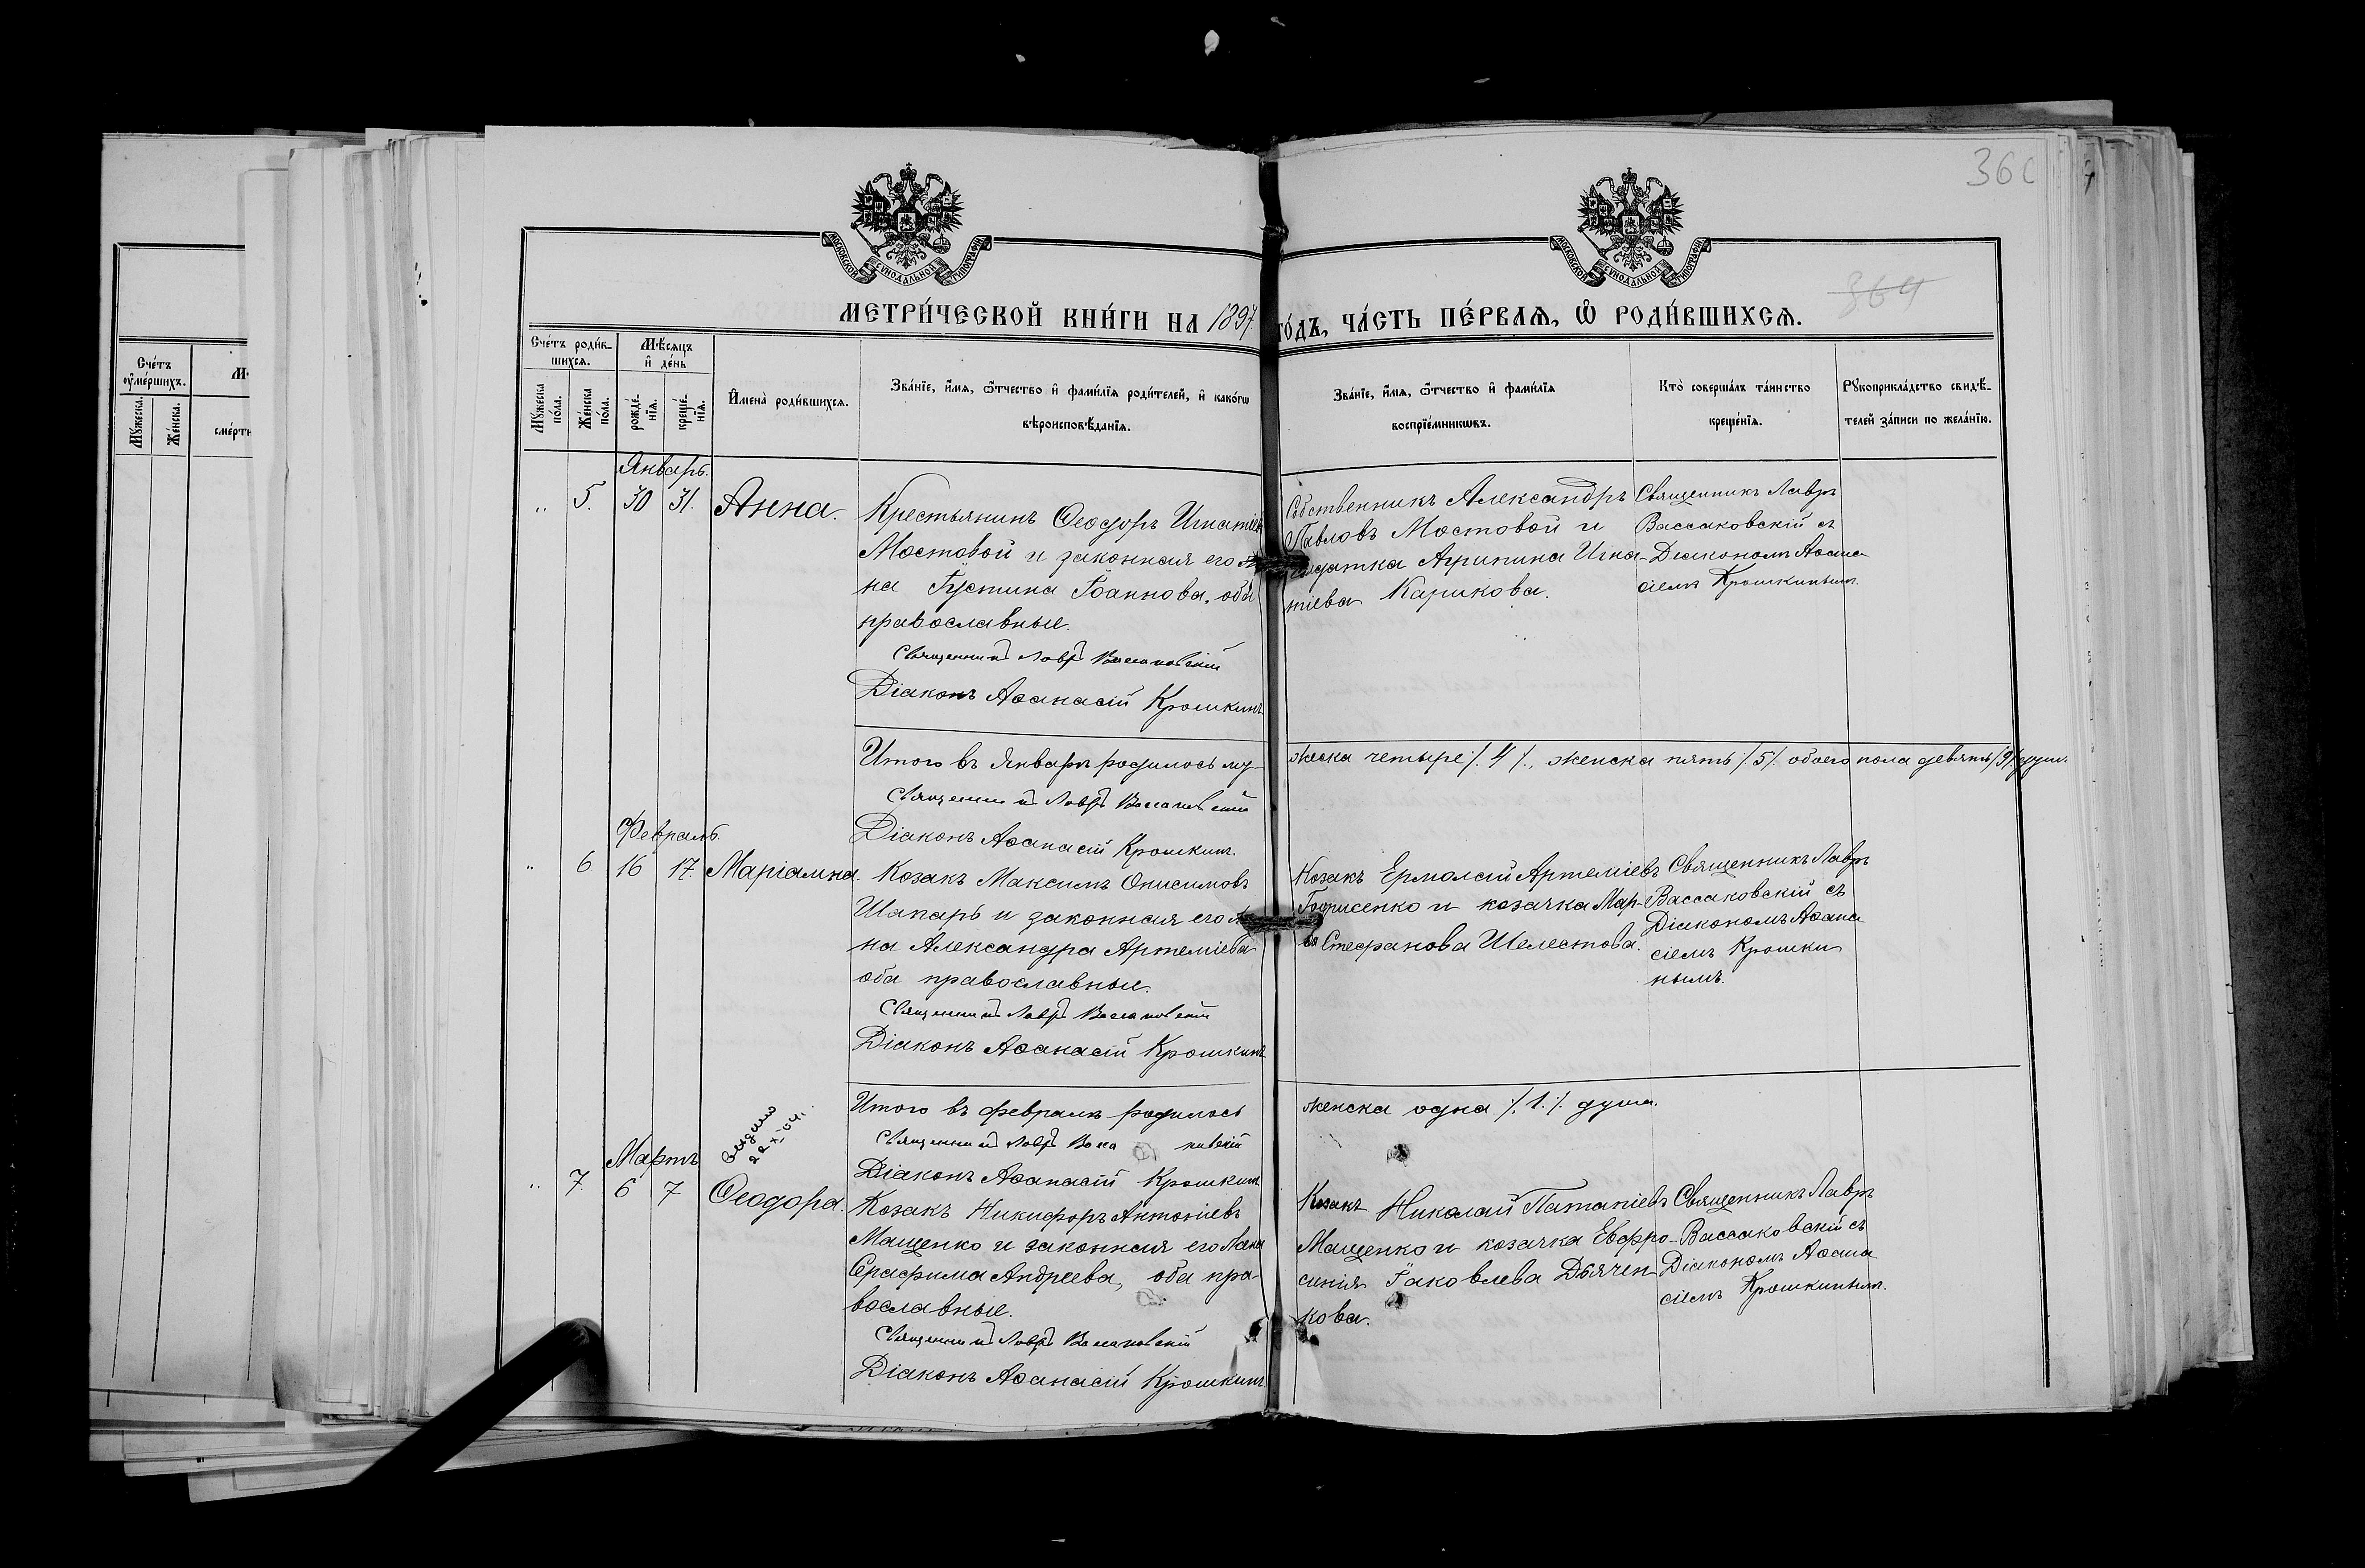 36
364
МОСКОВСКОЙ СѴНОДАЛЬНОЙ ТИПОГРАФІИ
МОСКОВСКОЙ СѴНОДАЛЬНОЙ ТИПОГРАФІИ
МЕТРИ́ЧЕСКОЙ КНИ́ГИ НА 1897 ГО́ДЪ, ЧА́СТЬ ПЕ́РВАѦ, Ѡ҆ РОДИ́ВШИХСѦ.
Сче́тъ
оу҆ме́ршихъ.
Мꙋ́жеска.
Же́нска.
М
сме́рти
Сче́тъ роди́в-
шихсѧ.
Мꙋ́жеска
по́ла.
Же́нска
по́ла.
Мѣ́сѧцъ
и҆ де́нь
рожде́-
нїѧ.
креще́-
нїѧ.
И҆мена̀ роди́вшихсѧ.
Зва́нїе, и҆́мѧ, ѻ҆́тчество и҆ фами́лїѧ роди́телей, и҆ како́гѡ
вѣроисповѣ́данїѧ.
Зва́нїе, и҆́мѧ, ѻ҆́тчество и҆ фами́лїѧ
воспрїе́мникѡвъ.
Кто̀ соверша́лъ та́инство
креще́нїѧ.
Рꙋкоприкла́дство свидѣ́-
телей за́писи по жела́нїю.
Январь.
„ 5. 30 31. Анна.
Крестьянинъ Ѳеодоръ Игнатіевъ
Мостовой и законная его же
на Іустина Іоаннова, оба
православные.
Священникъ Лавръ Вассаковскій
Діаконъ Аѳанасій Крошкинъ
Собственникъ Александръ
Павловъ Мостовой и
солдатка Агрипина Игна-
тіева Карикова.
Священникъ Лавръ
Вассаковскій съ
Діакономъ Аѳана-
сіемъ Крошкинымъ.
Итого въ Январѣ родилось му-
жеска четыре /.4/., женска пять /.5/. обоего пола девять /9/ душъ.
Священникъ Лавръ Вассаковскій
Діаконъ Аѳанасій Крошкинъ.
Февраль.
„ 6 16 17. Маріамна.
Козакъ Максимъ Онисимовъ
Шапарь и законная его же
на Александра Артеміева
оба православные.
Священникъ Лавръ Вассаковскій
Діаконъ Аѳанасій Крошкинъ
Козакъ Ермолай Артеміевъ
Борисенко и козачка Мар-
ѳа Стефанова Шелестова.
Священникъ Лавръ
Вассаковскій съ
Діакономъ Аѳана
сіемъ Крошки
нымъ.
Итого въ февралѣ родилось
женска одна /.1./. душа.
Священникъ Лавръ Вассаковскій
Діаконъ Аѳанасій Крошкинъ
Мартъ
„ 7. 6 7 Ѳеодора.
Козакъ Никифоръ Антоніевъ
Мащенко и законная его жена
Серафима Андреева, оба пра-
вославные.
Священникъ Лавръ Вассаковскій
Діаконъ Аѳанасій Крошкинъ.
Козакъ Николай Патапіевъ
Мащенко и козачка Евфро-
синія Іаковлева Дьячен
кова.
Священникъ Лавръ
Вассаковскій съ
Діакономъ Аѳана
сіемъ Крошкинымъ.